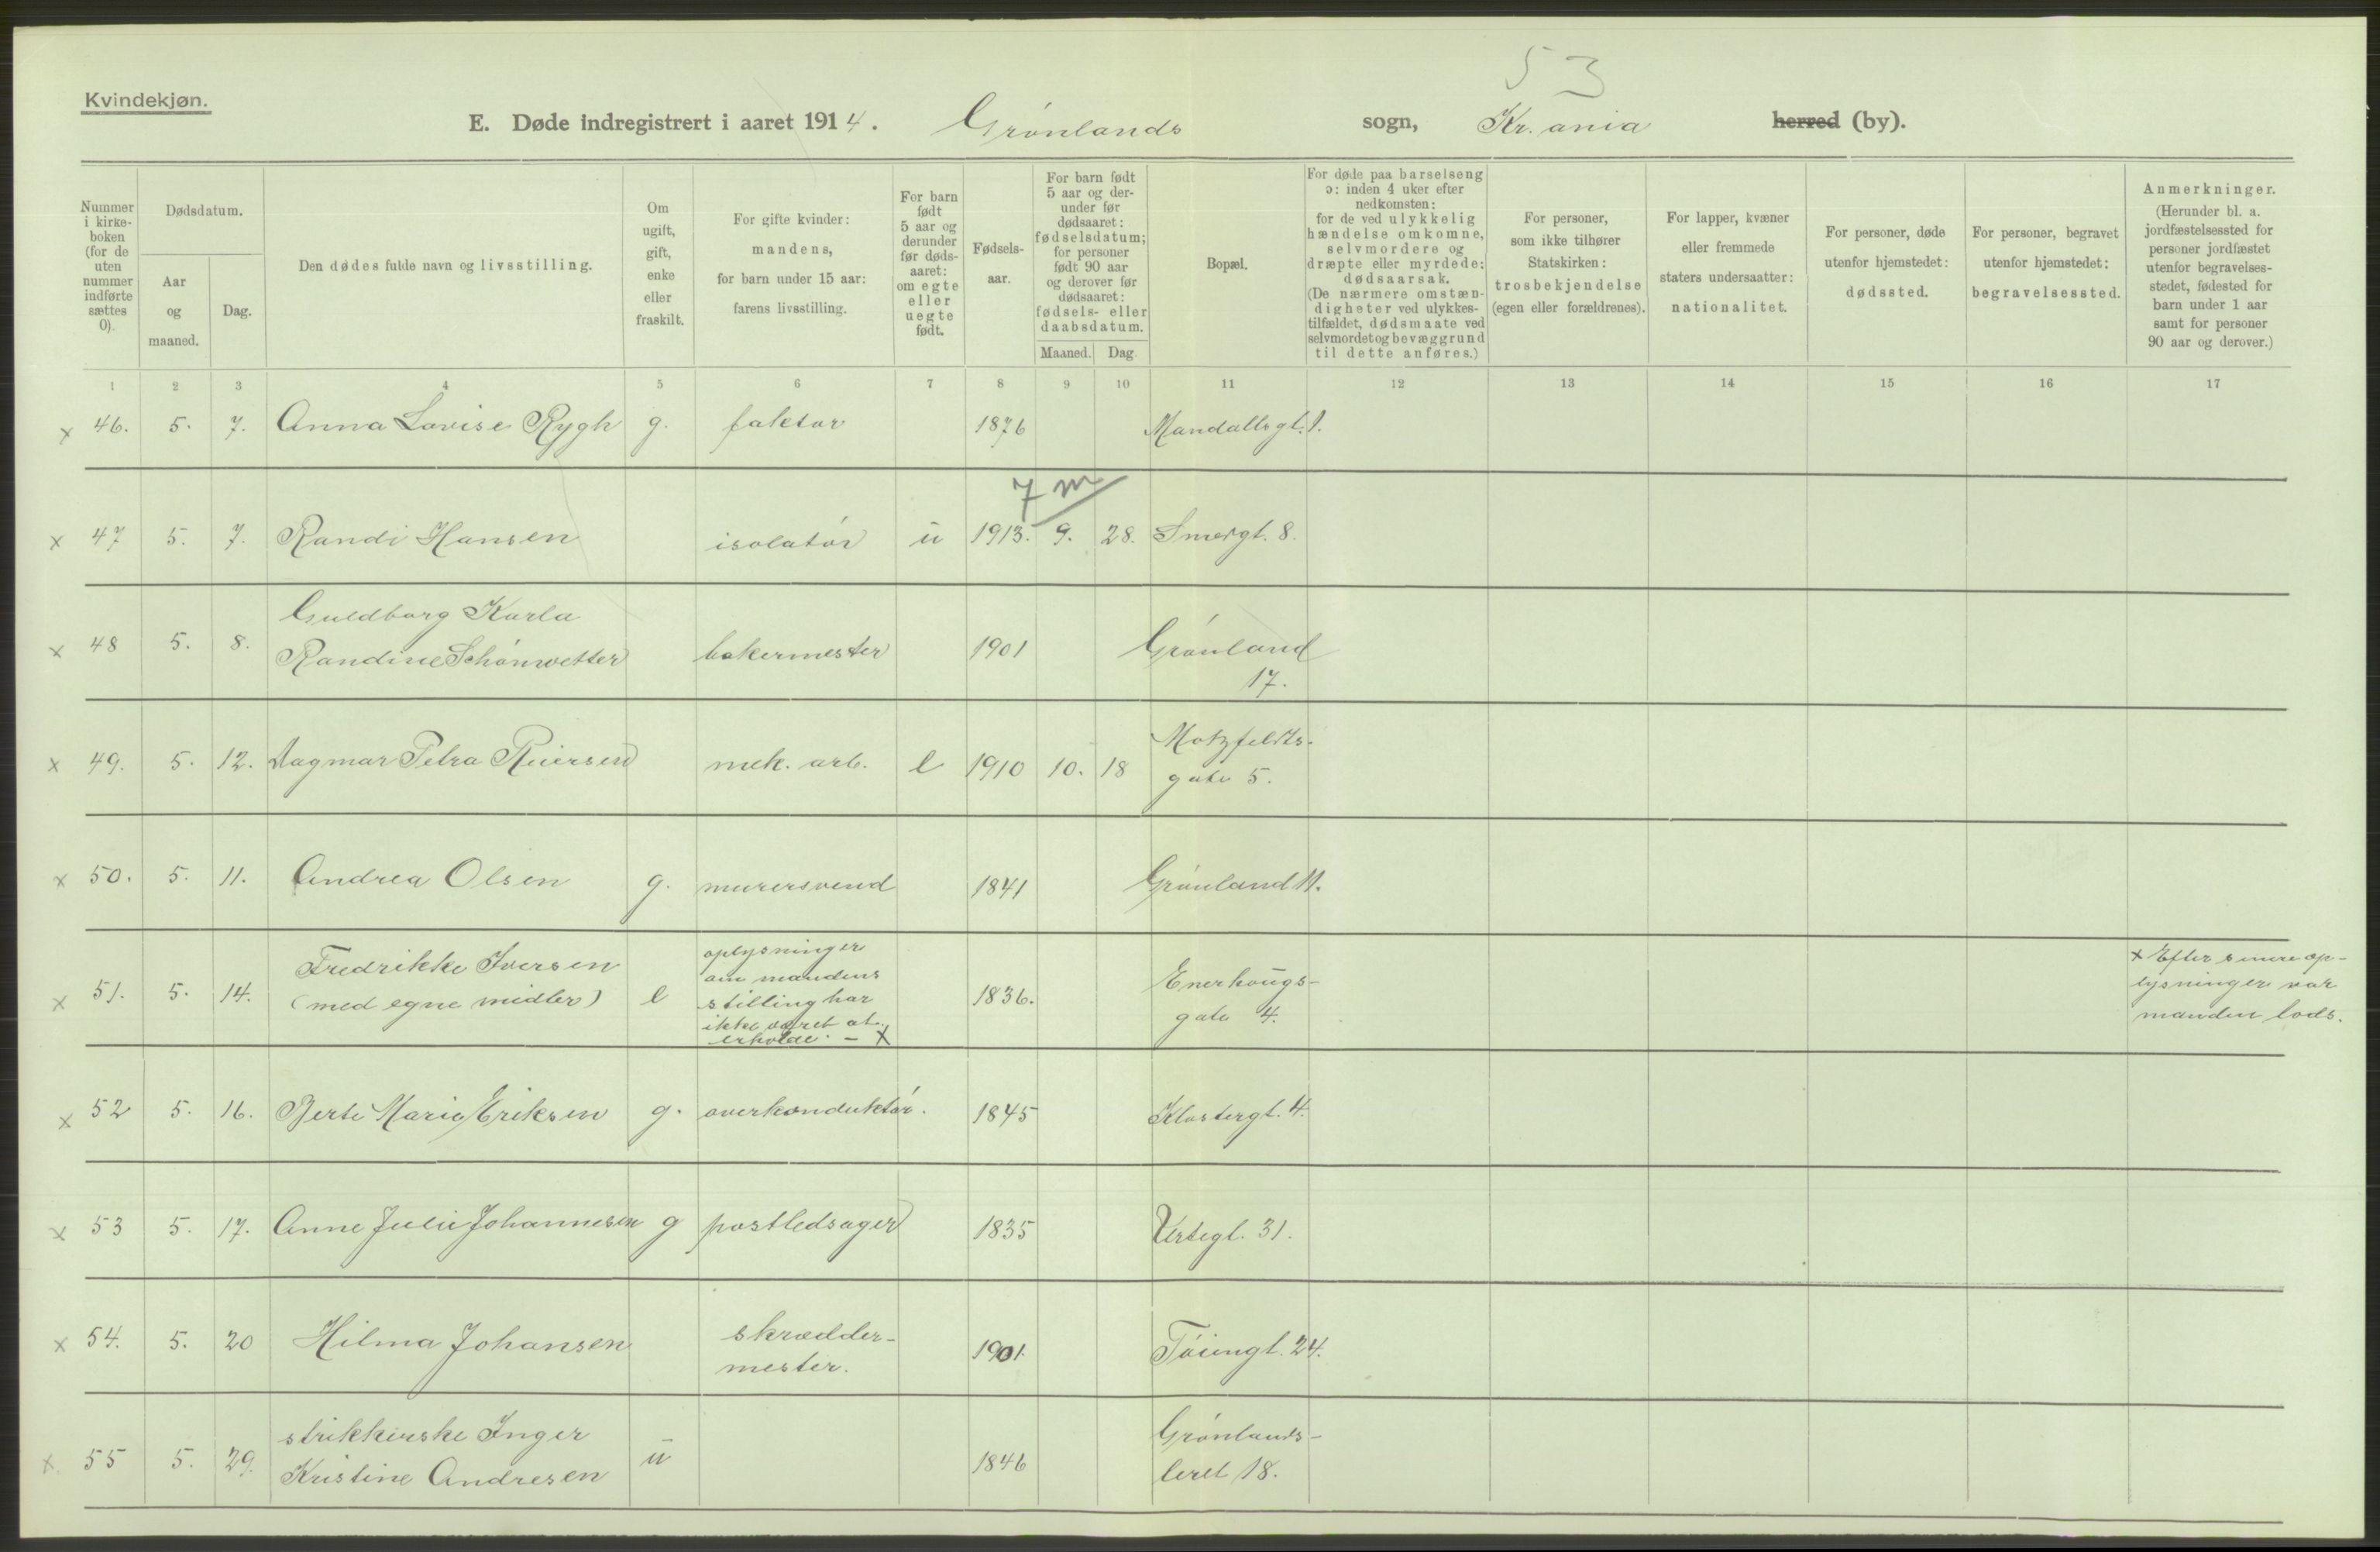 53
Kvindekjøn.
E. Døde indregistrert i aaret 1914. Grønlands sogn, Kr.ania herred (by).
Nummer i kirke-boken (for de uten nummer indførte sættes 0).
Dødsdatum.
Aar og maaned.
Dag.
Den dødes fulde navn og livsstilling.
Om ugift, gift, enke eller fraskilt.
For gifte kvinder: mandens, for barn under 15 aar: farens livsstilling.
For barn født 5 aar og derunder før døds-aaret: om egte eller uegte født.
Fødsels-aar.
For barn født 5 aar og der-under før dødsaaret: fødselsdatum; for personer født 90 aar og derover før dødsaaret: fødsels- eller daabsdatum.
Maaned. Dag.
Bopæl.
For døde paa barselseng ɔ: inden 4 uker efter nedkomsten: for de ved ulykkelig hændelse omkomne, selvmordere og dræpte eller myrdede: dødsaarsak. (De nærmere omstæn-digheter ved ulykkes-tilfældet, dødsmaate ved selvmordet og bevæggrund til dette anføres.)
For personer, som ikke tilhører Statskirken: trosbekjendelse (egen eller forældrenes).
For lapper, kvæner eller fremmede staters undersaatter: nationalitet.
For personer, døde utenfor hjemstedet: dødssted.
For personer, begravet utenfor hjemstedet: begravelsessted.
Anmerkninger. (Herunder bl. a. jordfæstelsessted for personer jordfæstet utenfor begravelses-stedet, fødested for barn under 1 aar samt for personer 90 aar og derover.)
1 2 3 4 5 6 7 8 9 10 11 12 13 14 15 16 17
x 46. 5. 7. Anna Lovise Rygh g. faktor 1876 Mandallsgt. 1.
7 m
x 47 5. 7. Randi Hansen isolatør u 1913. 9. 28. Smedgt. 8.
Guldborg Karla
x 48 5. 8. Randine Schönwetter bakermester 1901 Grønland
17.
Motzfeldts-
x 49. 5. 12. Dagmar Petra Reiersen mek. arb. e 1910 10. 18 gate 5.
x 50. 5. 11. Andrea Olsen g. murersvend 1841 Grønland 11.
Fredrikke Iversen oplysninger om mandens Enerhougs- x Efter senere op-
x 51. 5. 14. (med egne midler) e stilling har 1836. gate 4. lysninger var
ikke været at manden lods.
erholde. - x
x 52 5. 16. Berte Marie Eriksen g. overkonduktør. 1845 Klostergt. 4.
x 53 5. 17. Anne Julie Johannesen g postledsager 1835 Urtegt. 31.
x 54. 5. 20 Hilma Johansen skrædder- 1901. Tøiengt. 24.
mester.
strikkerske Inger Grønlands-
x. 55 5. 29. Kristine Andresen u 1846 leret 18.